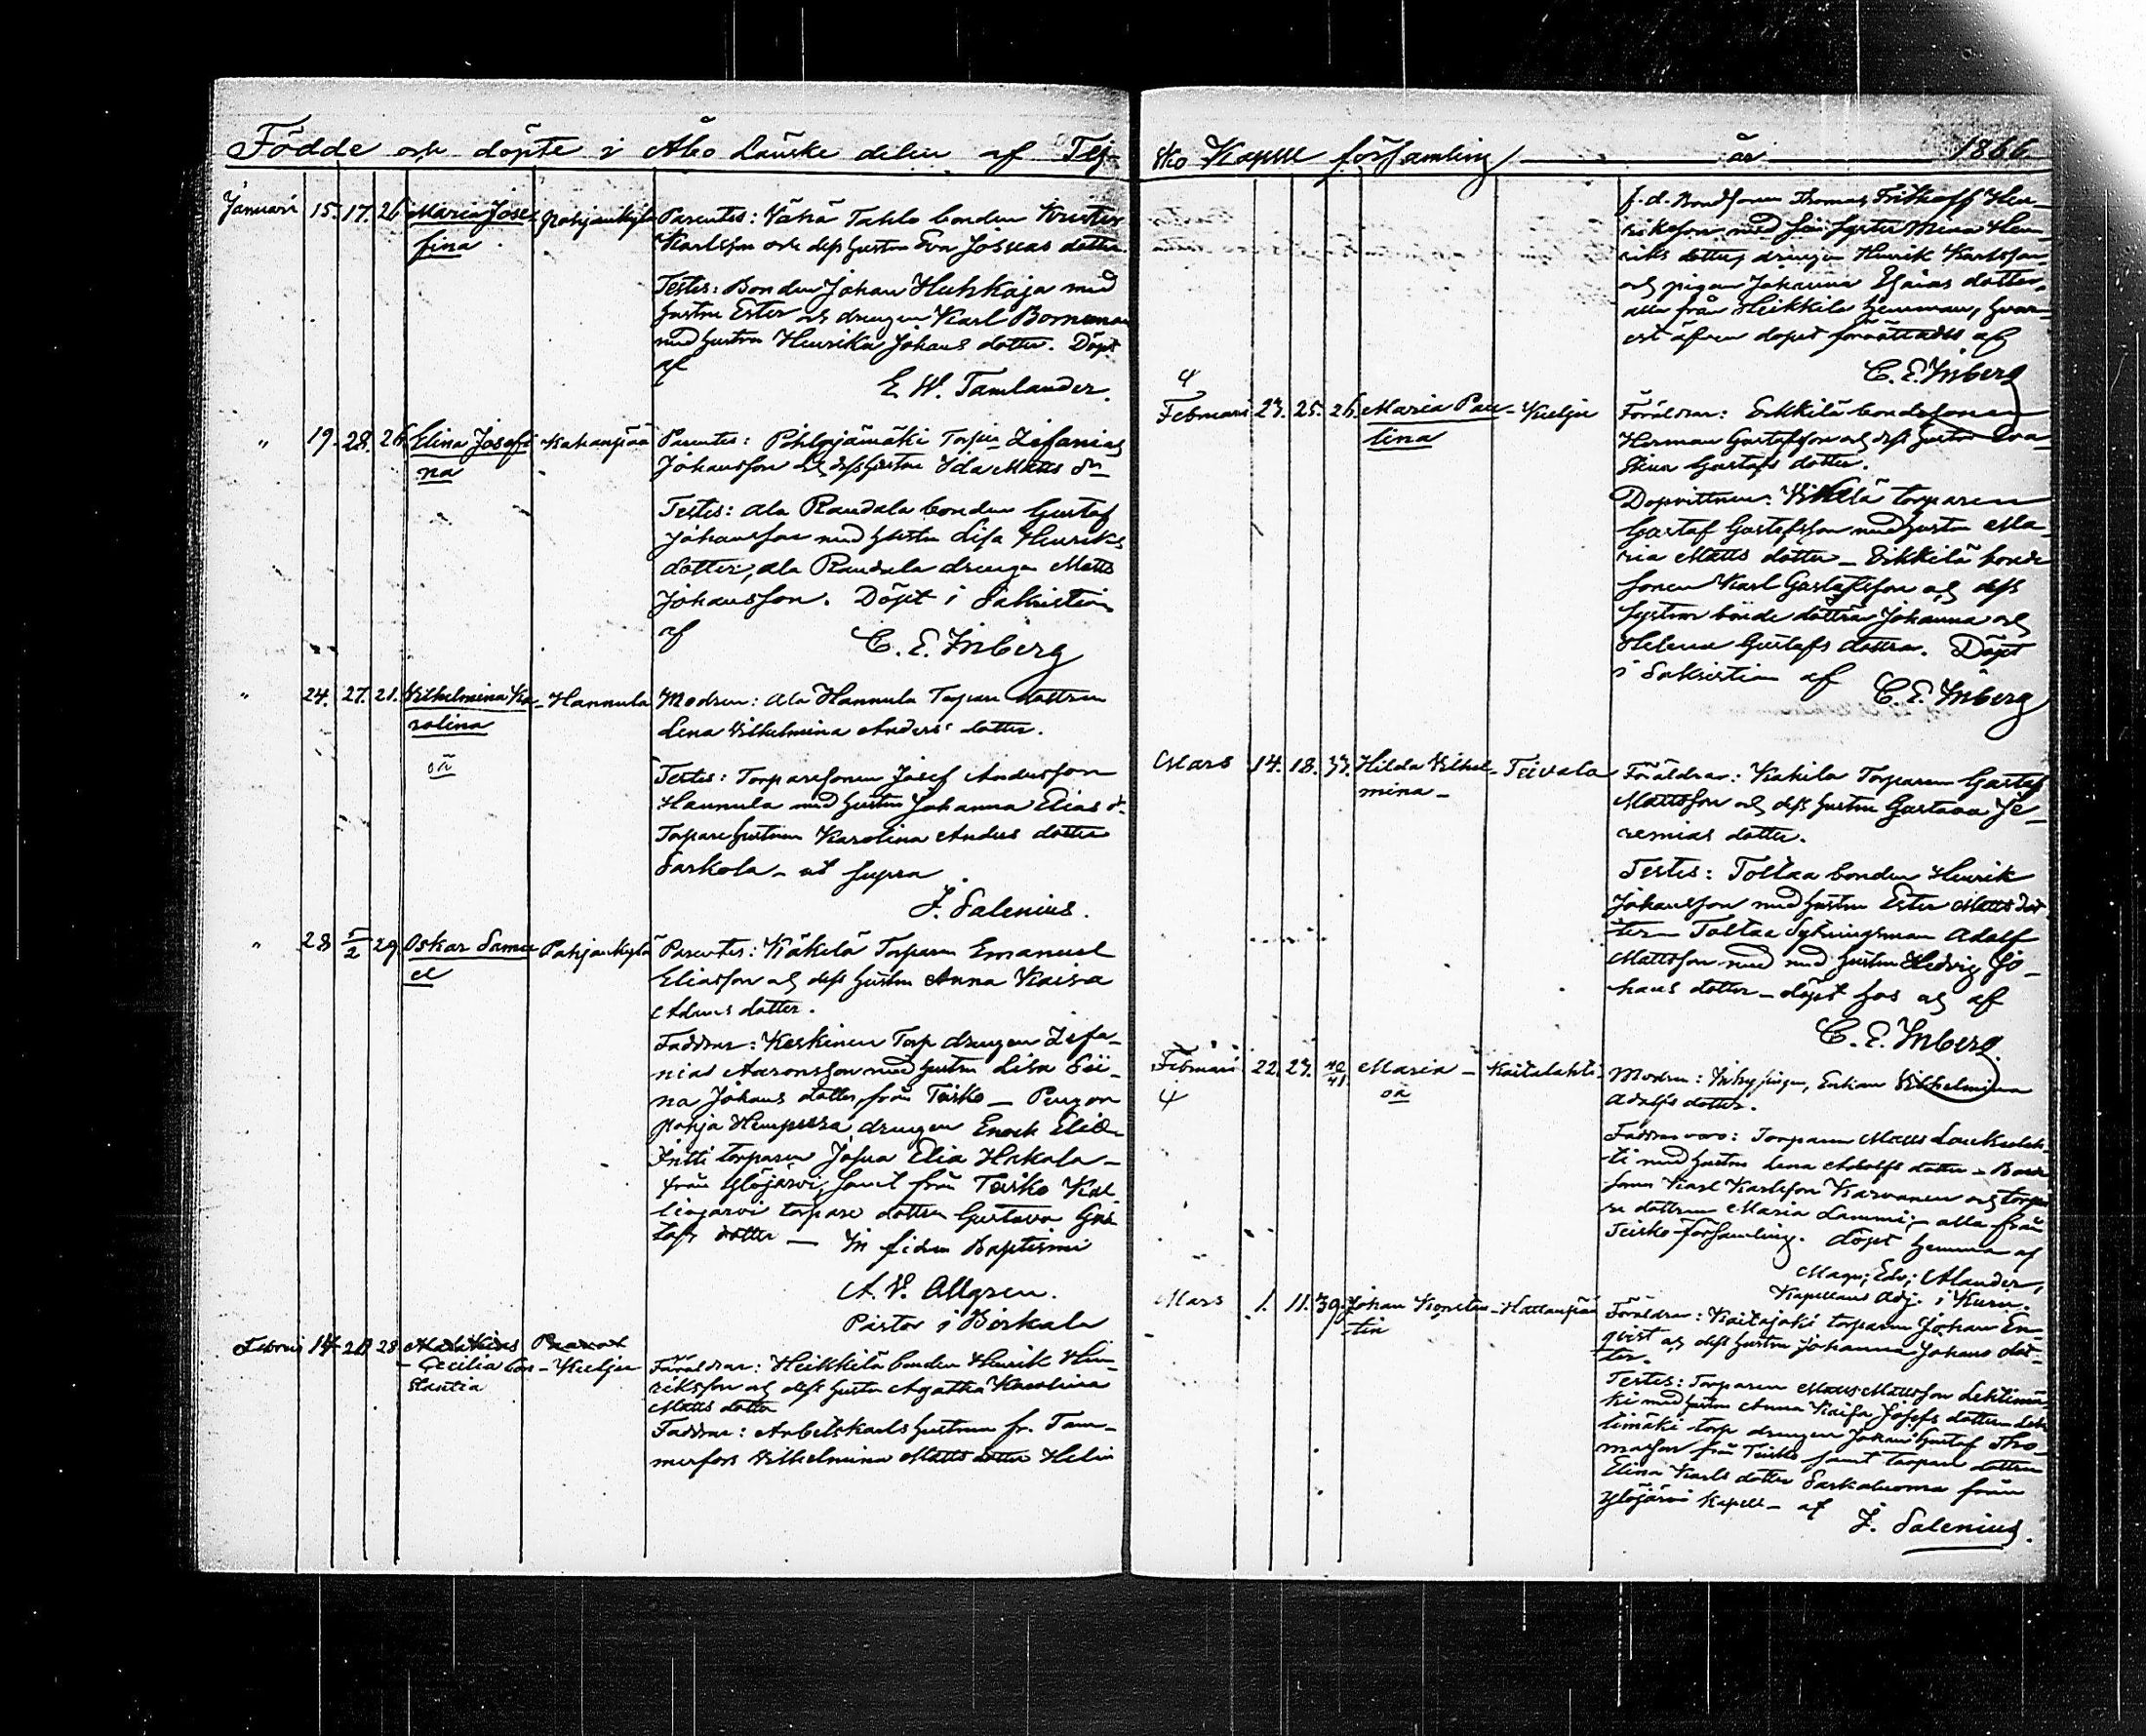 Födde och döpte i Åbo Länske delen af Tej-
Januari 15. 17. 26 Maria Jose- Pohjankylä Parentes: Vähä Tahlo bonden Krister
fina. Karlsson och dess hustru Eva Josuas dotter.
Testes: Bonden Johan Huhkaja med
hustru Ester och drengen Karl Borneman
med hustru Henrika Johans dotter. Döpt
af
E W. Tamlander.
" 19. 28. 26 Elina Josefi- Kahanpää Parentes: Pihlajamäki Torpn Zefanias
na Johansson och dess hustru Ida Matts dr
Testes: Ala Raudala bonden Gustaf
Johansson med hustru Lisa Henriks
dotter, ala Raudala drengen Matts
Johansson. Döpt i Sakristian
af C. E. Inberg
" 24. 27. 21. Vilhelmina Ka- Hannula Modren: Ala Hannula Torpare dottren
rolina Lena Vilhelmina Anders dotter.
oä
Testes: Torparesonen Josef Andersson
Hannula med hustru Johanna Elias dr
Torpare hustrun Karolina Anders dotter
Sarkola - ut supra
J. Salenius.
" 28 5/2 29. Oskar Samu- Pohjankylä Parentes: Käkelä Torparen Emanuel
el Eliasson och dess hustru Anna Kaisa
Adams dotter.
Faddrar: Keskinen Torp drengen Zefa-
nias Aaronsson med hustru Lisa Sti-
na Johans dotter, från Teisko -
Pohja drengen Enok
Antti torparen Josua Elia Hakala -
från Ylöjärvi, samt från Teisko Kal-
liojärvi torpare dottren Gustava Gus-
tafs dotter - In fidem Baptismi
A. V. Allgren.
Pastor i Birkala
Februari 14. 20 28
- Cecilia Con- - Kulju Föräldrar: Heikkilä bonden Henrik Hen-
stantia riksson och dess hustru Agatha Karolina
Matts dotter
Faddrar: Arbetskarls hustrun fr. Tam-
merfors Vilhelmina Matts dotter Helin
sko Kapell församling år 1866
f. d. Bondsonen Thomas Frithoff Hen-
riksson med sin syster Mina Hen-
riks dotter, drengen Henrik Karlsson
och pigan Johanna Esaias dotter,
alla från Heikkilä hemman, hvar-
est äfven dopet förrättades af
C. E. Inberg
4
Februari 23. 25. 26. Maria Pau- Kulju Föräldrar: Erkkilä bondesonen
lina Herman Gustafsson och dess hustru Eva
Stina Gustafs dotter.
Dopvittnen: Erkkilä torparen
Gustaf Gustafsson med hustru Ma-
ria Matts dotter - Erkkilä bonde
sonen Karl Gustafsson och dess
systrar bonde döttrar Johanna och
Helena Gustafs döttrar. Döpt
i Sakristian af C. E. Inberg
Mars 14. 18. 33. Hilda Vilhel- Teivala Föräldrar: Kakila Torparen Gustaf
mina - Mattsson och dess hustru Gustava Je-
remias dotter.
Testes: Toltaa bonden Henrik
Johansson med hustru Ester Matts dot-
ter - Toltaa Sytningsman Adolf
Mattsson med med hustru Hedvig Jo-
hans dotter - döpt hos och af
C. E. Inberg.
Februari 22. 23. 40/41. Maria - Kaitalahti Modren: Inhysingen, Enkan Vilhelmina
4 oä Adolfs dotter.
Faddrar voro: Torparen Matts Laukulah-
ti med hustru Lena Adolfs dotter - Bonde
sonen Karl Karlsson Karvanen och torpa-
re dottren Maria Lammi - alla från
Teisko församling. döpt hemma af
Magn; Edv; Alander,
Kapellans Adj. i Kuru.
Mars 1. 11. 39. Johan Konstan- - Hattanpää Föräldrar: Kaitajoki torparen Johan En-
tin qvist och dess hustru Johanna Johans dot-
ter.
Testes: Torparen Matts Mattsson Lehtimä-
ki med hustru Anna Kaisa Josefs dotter - Leh-
timäki torp drengen Johan Gustaf Tho-
masson från Teisko samt torpare dottren
Elina Karls dotter Sarkaluoma från
Ylöjärvi Kapell - af
J. Salenius.